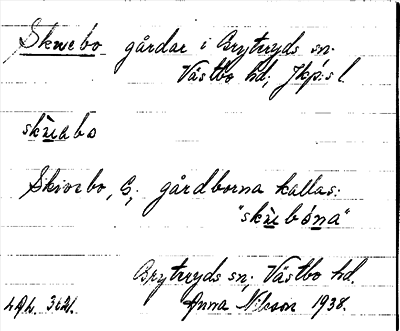 Skivebo gårdar i Bryteryds sn.
Västbo hd, Jkp:s l.
skìvabo
Skivebo, G; gårdborna kallas:
"skìvebóna"
Bryteryds sn; Västbo hd.
Anna Nilsson 1938.